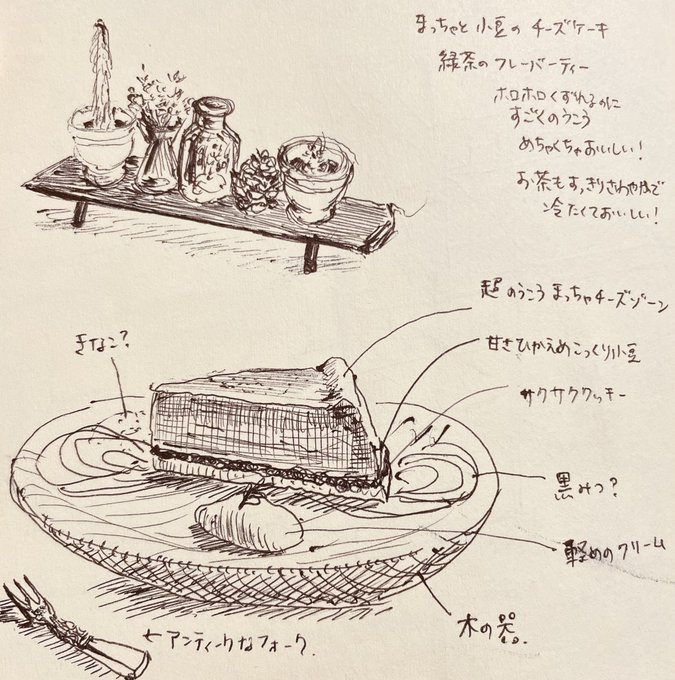 まっちゃと小豆のチーズケーキ
緑茶のフレーバーティー
ホロホロくずれるのに
すごくのうこう
めちゃくちゃおいしい!
お茶もすっきりさわやかで
冷たくておいしい!
超のうこうまっちゃチーズゾーン
きなこ?
甘さひかえめこっくり小豆
サクサククッキー
黒みつ?
軽めのクリーム
木の器。
←アンティークなフォーク。